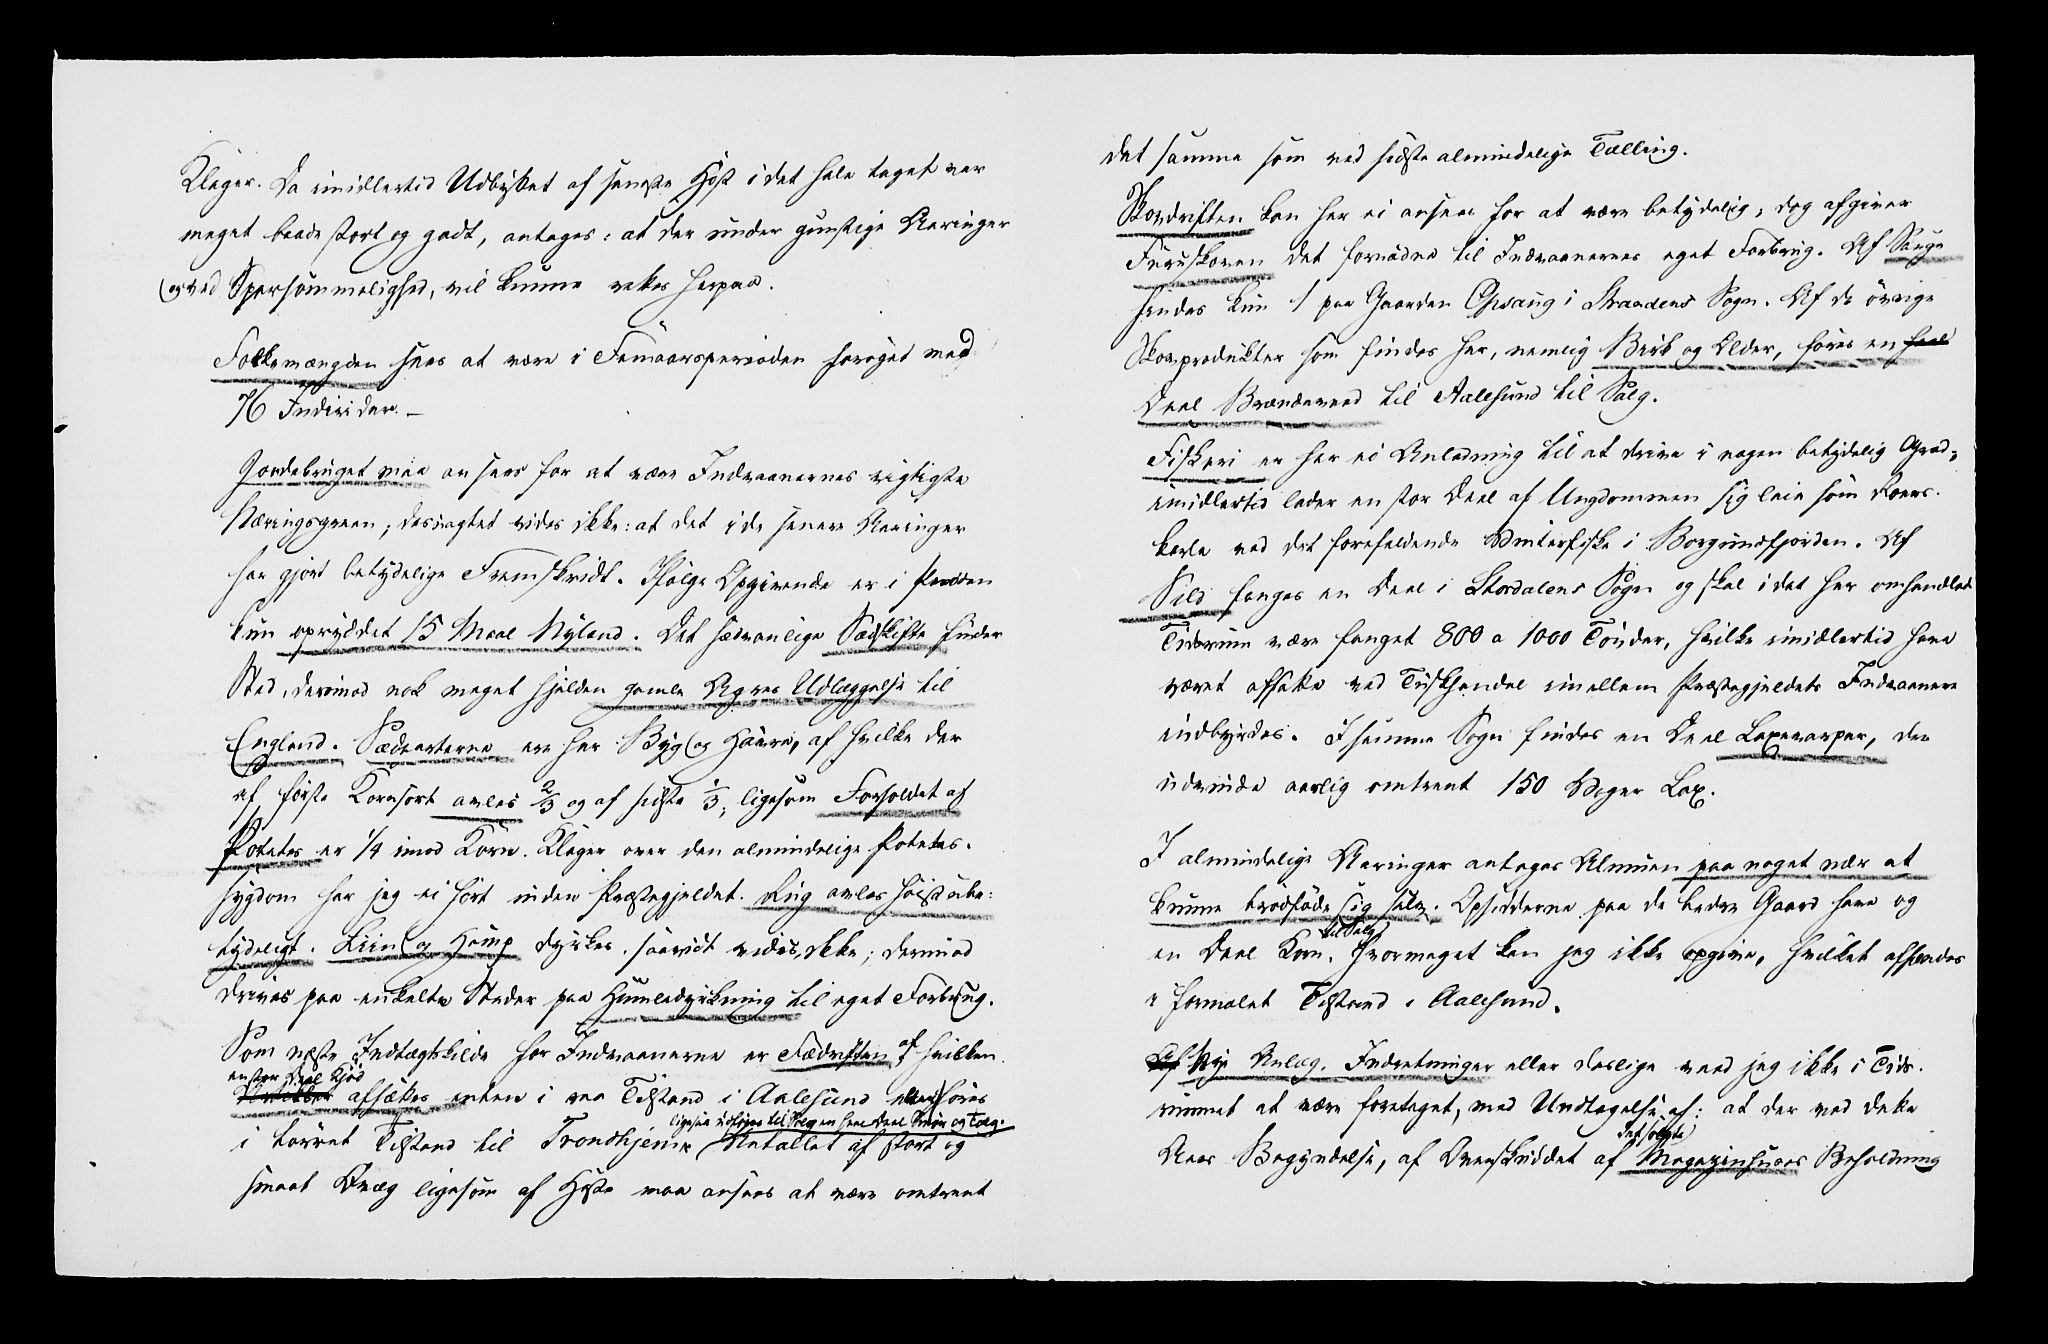 Klager. Da imidlertid Udbyttet af seneste Høst i det hele taget var
meget baade stort og godt, antages: at der under gunstige Aaringer
og ved Sparsommelighed, vil kunne rettes herpaa.
Folkemængden sees at være i Femaarsperioden forøget med
76 Individer. –
Jordebruget maa ansees for at være Indvaanernes vigtigste
Næringsgreen; desuagtet vides ikke: at det i de senere Aaringer
har gjort betydelige Fremskridt. Ifølge Opgivende er i Perioden
kun opryddet 15 Maal Nyland. Det sædvanlige Sædskifte finder
Sted, derimod nok meget sjelden gamle Agres Udlæggelse til
England. Sædearterne ere her Byg og Havre, af hvilke der
af første Kornsort avles 2/3 og af sidste 1/3; ligesom Forholdet af
Potetes er 1/4 imod Korn. Klager over den almindelige Potetes-
sygdom har jeg ei hørt inden Præstegjeldet. Rug avles høist ube-
tydeligt. Liin og Hamp dyrkes, saavidt vides, ikke; derimod
drives paa enkelte Steder paa Humledyrkning til eget Forbrug.
Som næste Indtægtskilde for Indvaanerne er Fædriften af hvilken
en stor Deel Kjød
afsættes enten i raa Tilstand i Aalesund eller føres
ligesaa udføres til Salg en heel Deel Smør og Talg.
i tørret Tilstand til Trondhjem. Antallet af stort og
smaat Qvæg ligesom af Heste maa ansees at være omtrent
det samme som ved sidste almindelige Tælling.
Skovdriften kan her ei ansees for at være betydelig; dog afgiver
Furuskoven det fornødne til Indvaanernes eget Forbrug. Af Sauge
findes kun 1 paa Gaarden Opsaug i Strandens Sogn. Af de øvrige
Skovprodukter som findes her, nemlig Birk og Older, føres en heel
Deel Brændeveed til Aalesund til Salg.
Fiskeri er her ei Anledning til at drive i nogen betydelig Grad;
imidlertid lader en stor Deel af Ungdommen sig leie som Roers-
karle ved det forefaldende Vinterfiske i Borgundfjorden. Af
Sild fanges en Deel i Stordalens Sogn og skal i det her omhandlede
Tidsrum være fanget 800 a 1000 Tønder, hvilke imidlertid have
været afsatte ved Tuskhandel imellem Præstegjeldets Indvaanere
indbyrdes. I samme Sogn findes en Deel Laxevarper, der
udvinde aarlig omtrent 150 Voger Lax.
I almindelige Aaringer antages Almuen paa noget nær at
kunne brødføde sig selv. Opsidderne paa de bedre Gaard have og
til Salg
en Deel Korn, hvormeget kan jeg ikke opgive, hvilket afsendes
i formalet Tilstand i Aalesund.
Af Nye Anlæg, Indretninger eller deslige veed jeg ikke i Tids-
rummet at være foretaget, med Undtagelse af: at der ved dette
Aars Begyndelse, af Overskuddet af Magazinhusets Beholdning